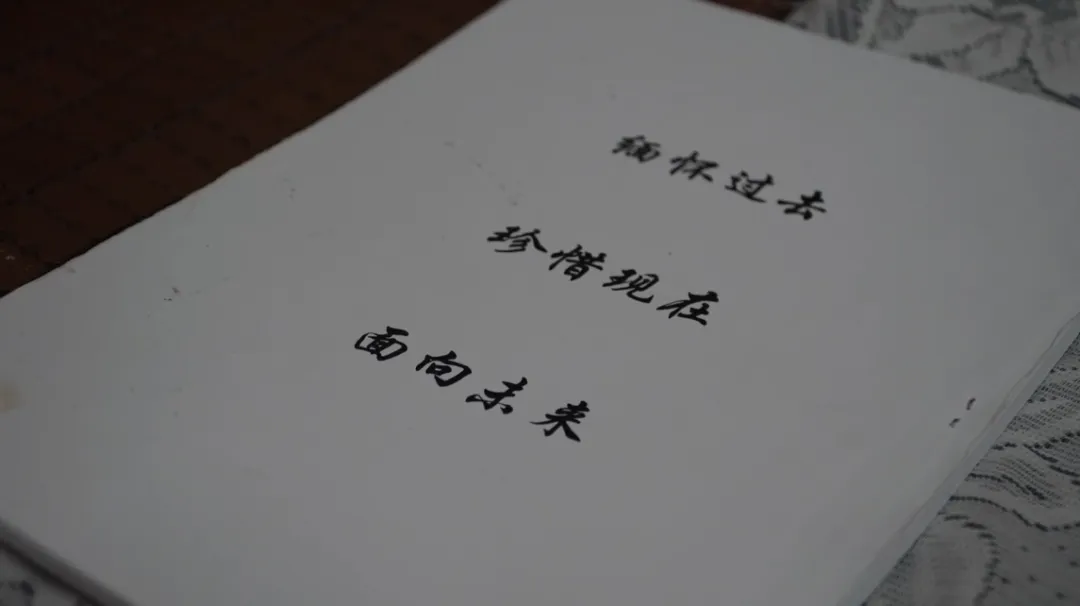 缅怀过去
珍惜现在
面向未来